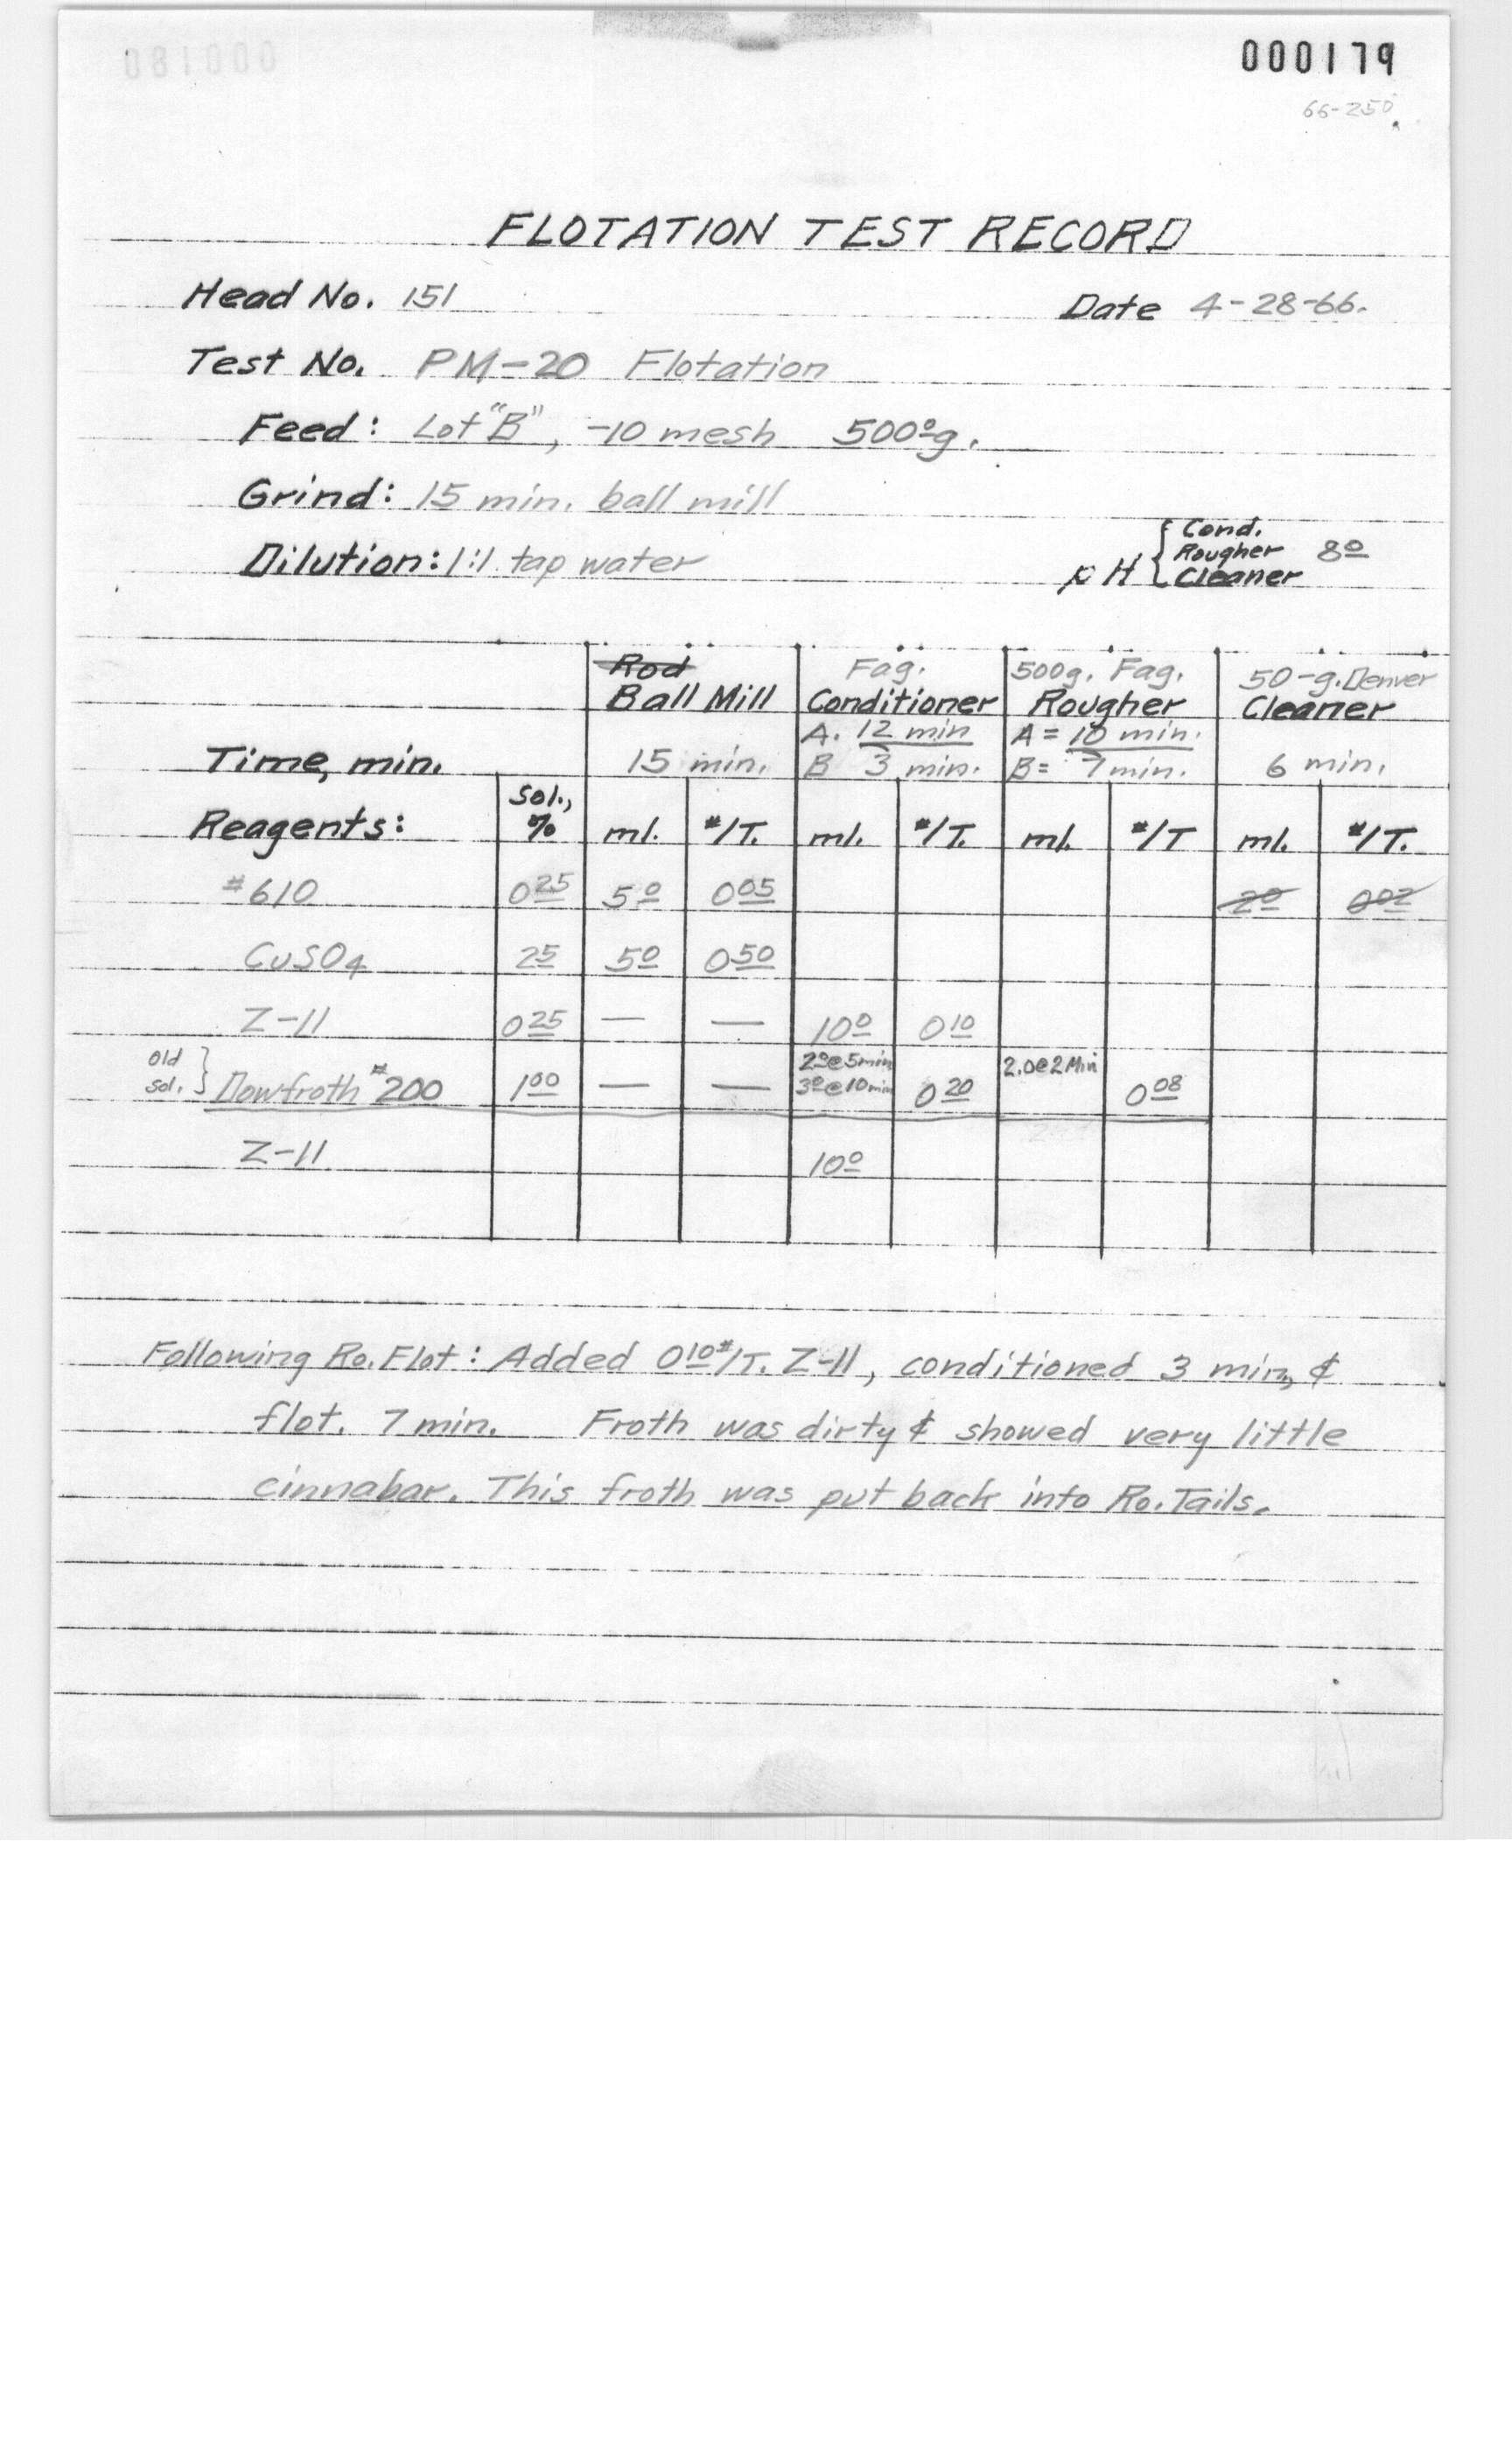 000179
66-250
FLOTATION TEST RECORD
Head No. 151 Date 4-28-66.
Test No. PM-20 Flotation
Feed: Lot "B", -10 mesh 500.0g.
Grind: 15 min. ball mill
Dilution: 1:1 tap water pH { Cond. Rougher Cleaner 8.0
Rod Fag. 500g. Fag. 50-g. Denver
Ball Mill Conditioner Rougher Cleaner
A. 12 min A = 10 min.
Time, min. 15 min. B 3 min. B = 7 min. 6 min.
Sol.,
Reagents: % ml. #/T. ml. #/T. ml. #/T ml. #/T.
#610 0.25 5.0 0.05 2.0 0.02
CuSO4 2.5 5.0 0.50
Z-11 0.25 — — 10.0 0.10
Old 2.0 @ 5 min 2.0 @ 2 Min
Sol. } Dowfroth #200 1.00 — — 3.0 @ 10 min 0.20 0.08
Z-11 10.0
Following Ro. Flot: Added 0.10 #/T. Z-11, conditioned 3 min, &
flot. 7 min. Froth was dirty & showed very little
cinnabar. This froth was put back into Ro. Tails.